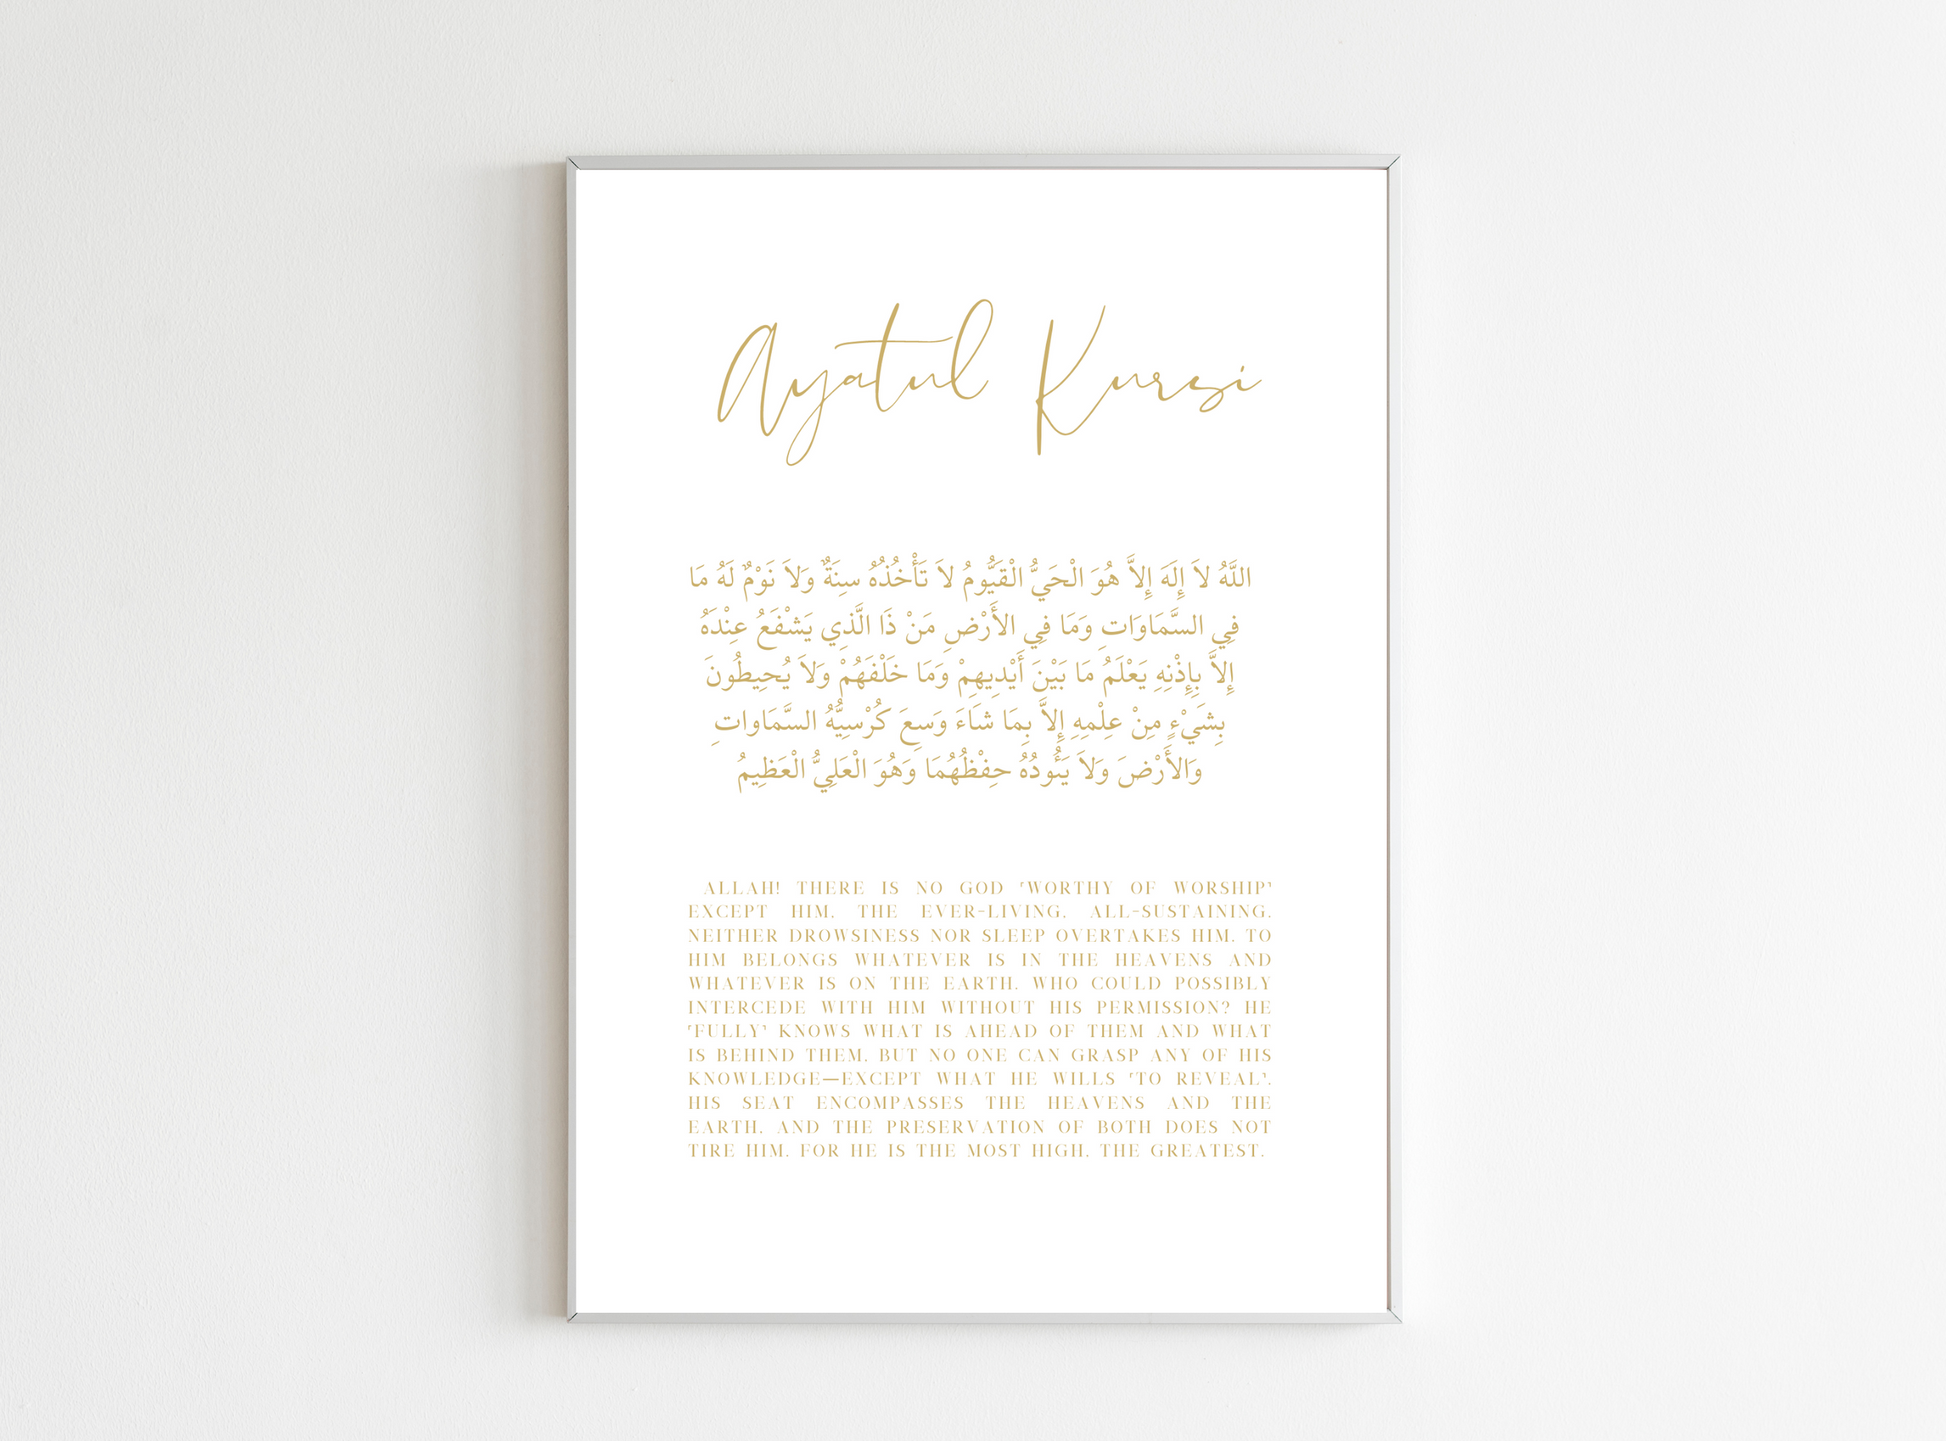 Ayatul Kursi
اللَّهُ لاَ إِلَهَ إِلاَّ هُوَ الْحَيُّ الْقَيُّومُ لاَ تَأْخُذُهُ سِنَةٌ وَلاَ نَوْمٌ لَهُ مَا
فِي السَّمَاوَاتِ وَمَا فِي الأَرْضِ مَنْ ذَا الَّذِي يَشْفَعُ عِنْدَهُ
إِلاَّ بِإِذْنِهِ يَعْلَمُ مَا بَيْنَ أَيْدِيهِمْ وَمَا خَلْفَهُمْ وَلاَ يُحِيطُونَ
بِشَيْءٍ مِنْ عِلْمِهِ إِلاَّ بِمَا شَاءَ وَسِعَ كُرْسِيُّهُ السَّمَاواتِ
وَالأَرْضَ وَلاَ يَئُودُهُ حِفْظُهُمَا وَهُوَ الْعَلِيُّ الْعَظِيمُ
ALLAH! THERE IS NO GOD ˹WORTHY OF WORSHIP˺
EXCEPT HIM, THE EVER-LIVING, ALL-SUSTAINING.
NEITHER DROWSINESS NOR SLEEP OVERTAKES HIM. TO
HIM BELONGS WHATEVER IS IN THE HEAVENS AND
WHATEVER IS ON THE EARTH. WHO COULD POSSIBLY
INTERCEDE WITH HIM WITHOUT HIS PERMISSION? HE
˹FULLY˺ KNOWS WHAT IS AHEAD OF THEM AND WHAT
IS BEHIND THEM, BUT NO ONE CAN GRASP ANY OF HIS
KNOWLEDGE—EXCEPT WHAT HE WILLS ˹TO REVEAL˺.
HIS SEAT ENCOMPASSES THE HEAVENS AND THE
EARTH, AND THE PRESERVATION OF BOTH DOES NOT
TIRE HIM. FOR HE IS THE MOST HIGH, THE GREATEST.